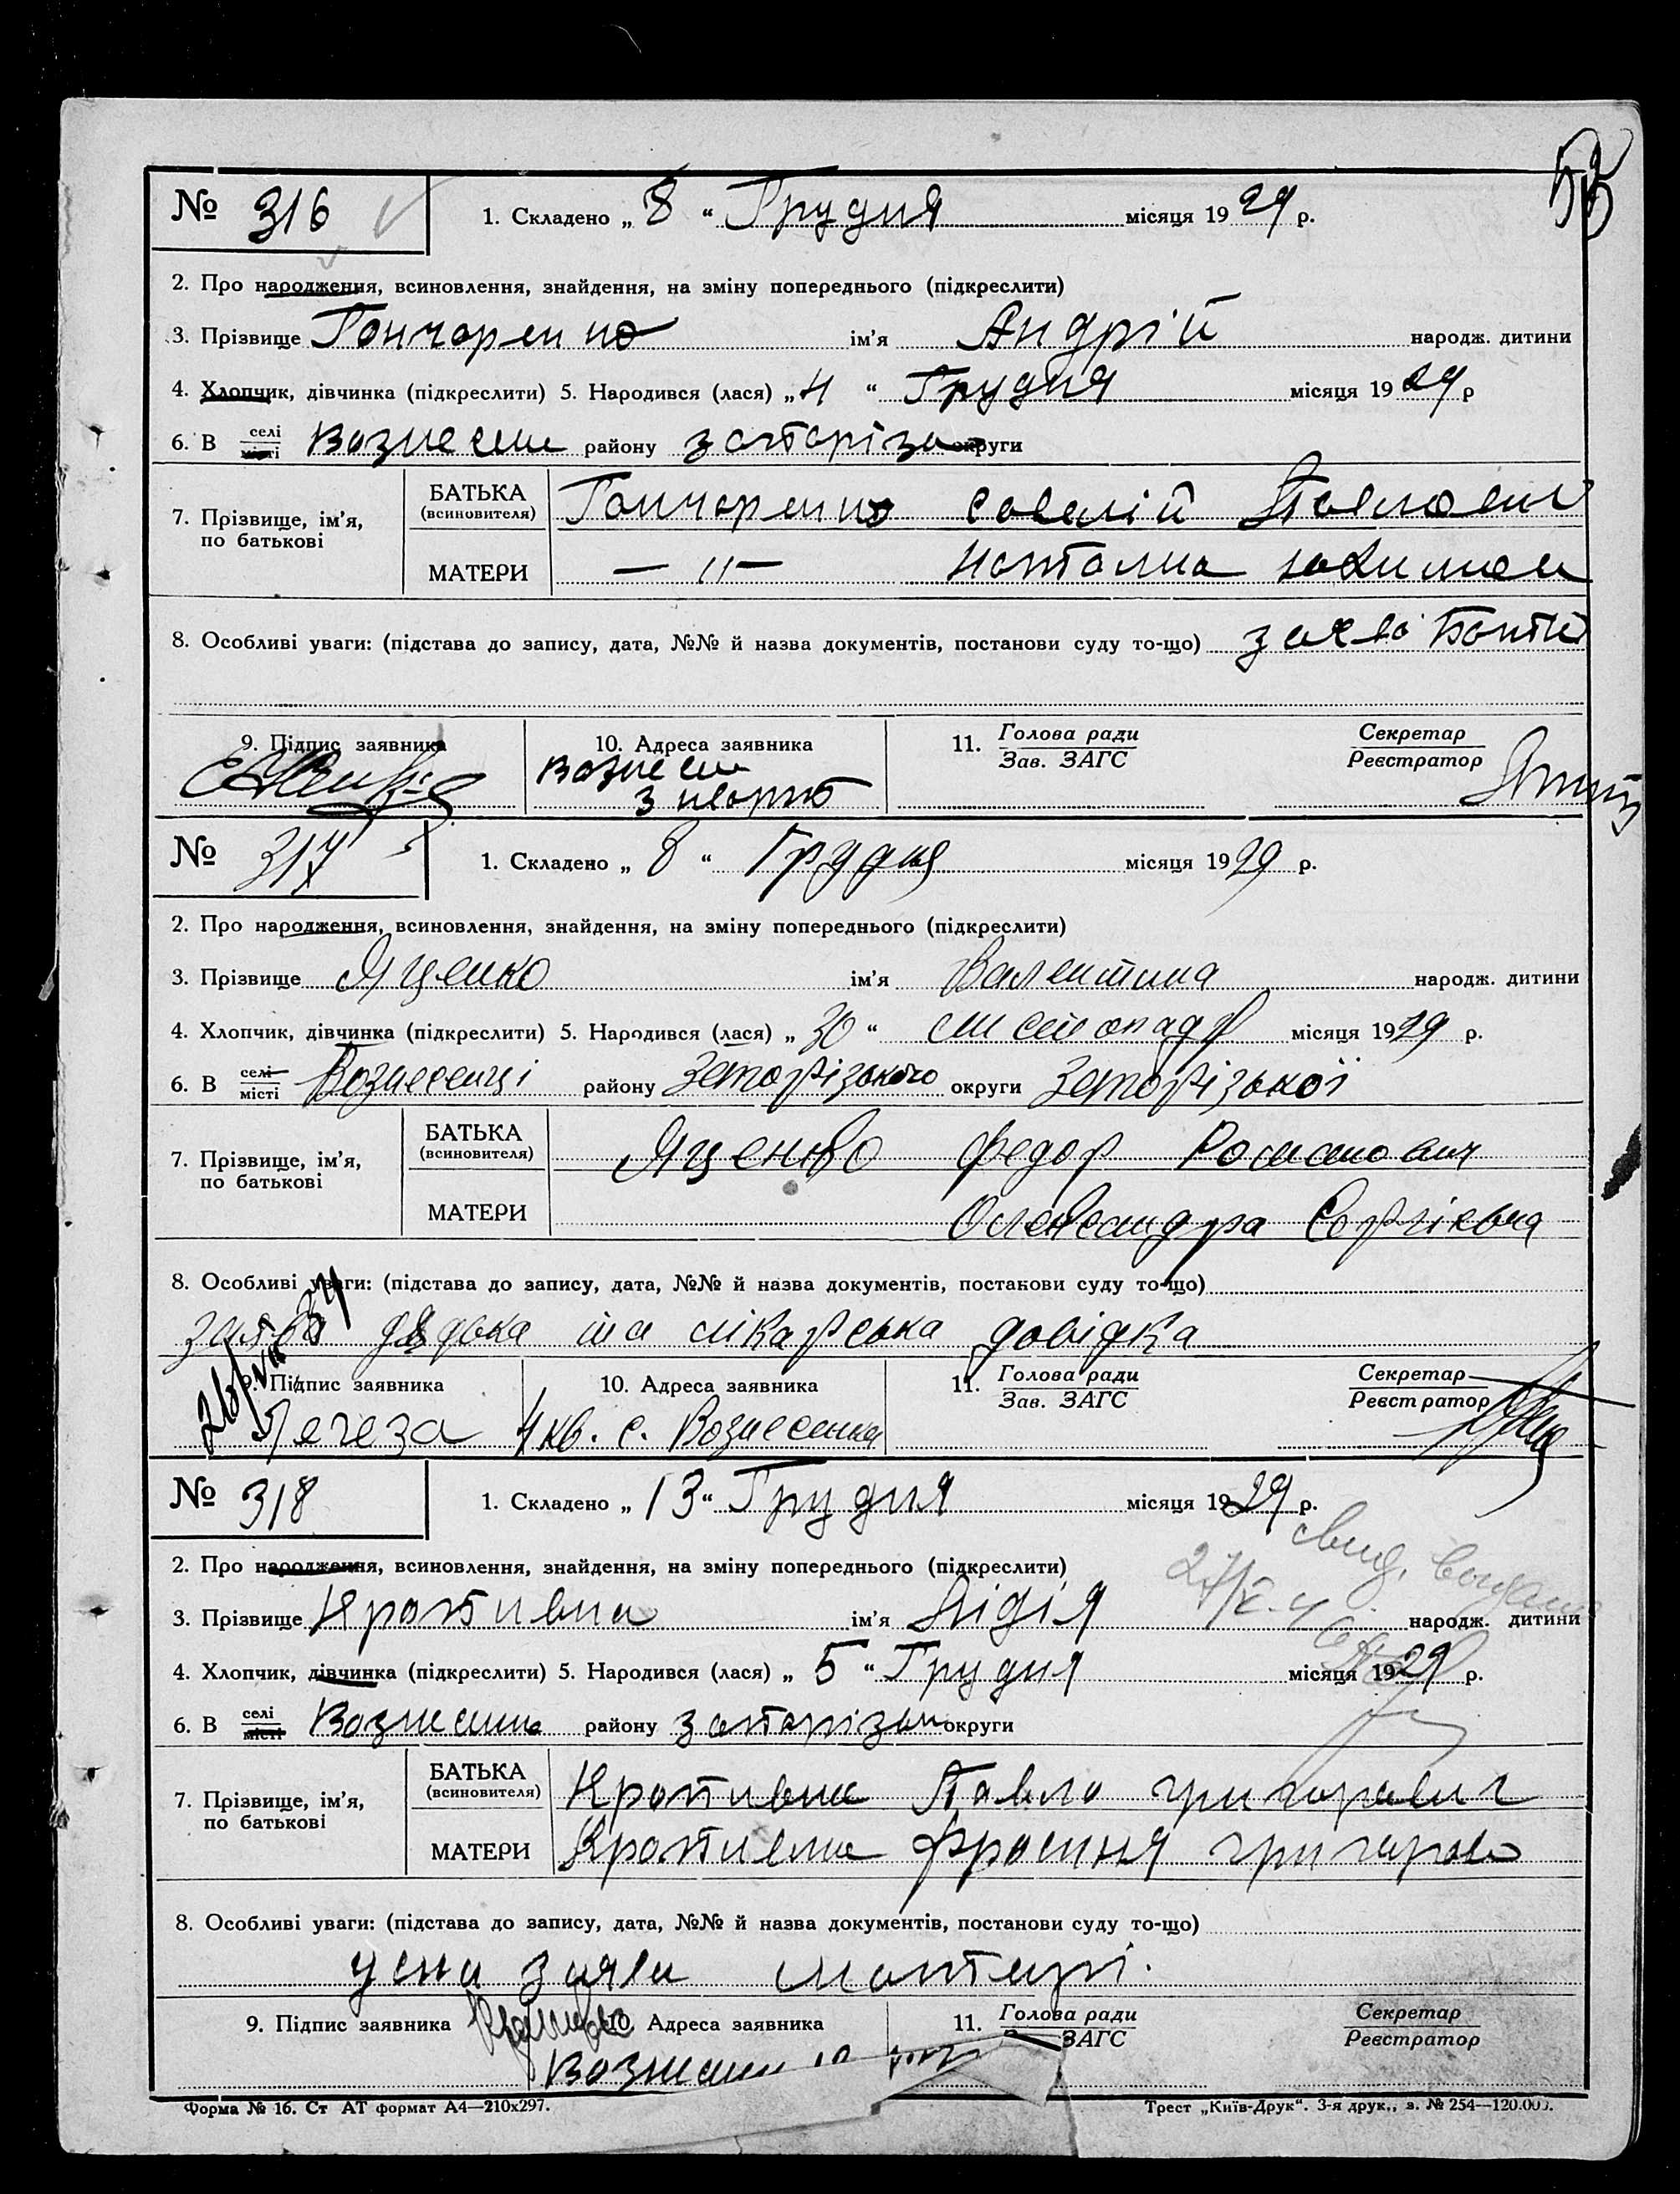 53
№ 316
1. Складено „ 8 “ Грудня місяця 1929 р.
2. Про народження, всиновлення, знайдення, на зміну попереднього (підкреслити)
3. Прізвище Гончаренко ім'я Андрій народж. дитини
4. Хлопчик, дівчинка (підкреслити) 5. Народився (лася) „ 4 “ Грудня місяця 1929 р
6. В селі місті Вознесен району запоріза округи
7. Прізвище, ім'я, по батькові
БАТЬКА (всиновителя) Гончаренко Савелій Павлович
МАТЕРИ — 〃 — Наталиа
8. Особливі уваги: (підстава до запису, дата, №№ й назва документів, постанови суду то-що) заява
9. Підпис заявника 10. Адреса заявника 11. Голова ради Зав. ЗАГС Секретар Реєстратор
Вознесен
3 кварт
№ 317
1. Складено „ 8 “ Грудня місяця 1929 р.
2. Про народження, всиновлення, знайдення, на зміну попереднього (підкреслити)
3. Прізвище Яценко ім'я Валентина народж. дитини
4. Хлопчик, дівчинка (підкреслити) 5. Народився (лася) „ 30 “ листопада місяця 1929 р.
6. В селі місті Вознесенці району Запорізького округи Запорізької
7. Прізвище, ім'я, по батькові
БАТЬКА (всиновителя) Яценко Федор Романович
МАТЕРИ Олександра Сергієвна
8. Особливі уваги: (підстава до запису, дата, №№ й назва документів, постанови суду то-що)
заява дядька та лікарська довідка
9. Підпис заявника 10. Адреса заявника 11. Голова ради Зав. ЗАГС Секретар Реєстратор
4 кв. с. Вознесенка
№ 318
1. Складено „ 13 “ Грудня місяця 1929 р.
2. Про народження, всиновлення, знайдення, на зміну попереднього (підкреслити)
3. Прізвище Кропивна ім'я Лідія народж. дитини
4. Хлопчик, дівчинка (підкреслити) 5. Народився (лася) „ 5 “ Грудня місяця 1929 р.
6. В селі місті Вознесенка району запорізьк округи
7. Прізвище, ім'я, по батькові
БАТЬКА (всиновителя) Кропивна Павло григоравич
МАТЕРИ Кропивна Фросиня григорова
8. Особливі уваги: (підстава до запису, дата, №№ й назва документів, постанови суду то-що)
усна заява матері.
9. Підпис заявника 10. Адреса заявника 11. Голова ради ЗАГС Секретар Реєстратор
Форма № 16. Ст АТ формат А4—210х297. Трест „Київ-Друк“. 3-я друк., з. № 254—120.000.